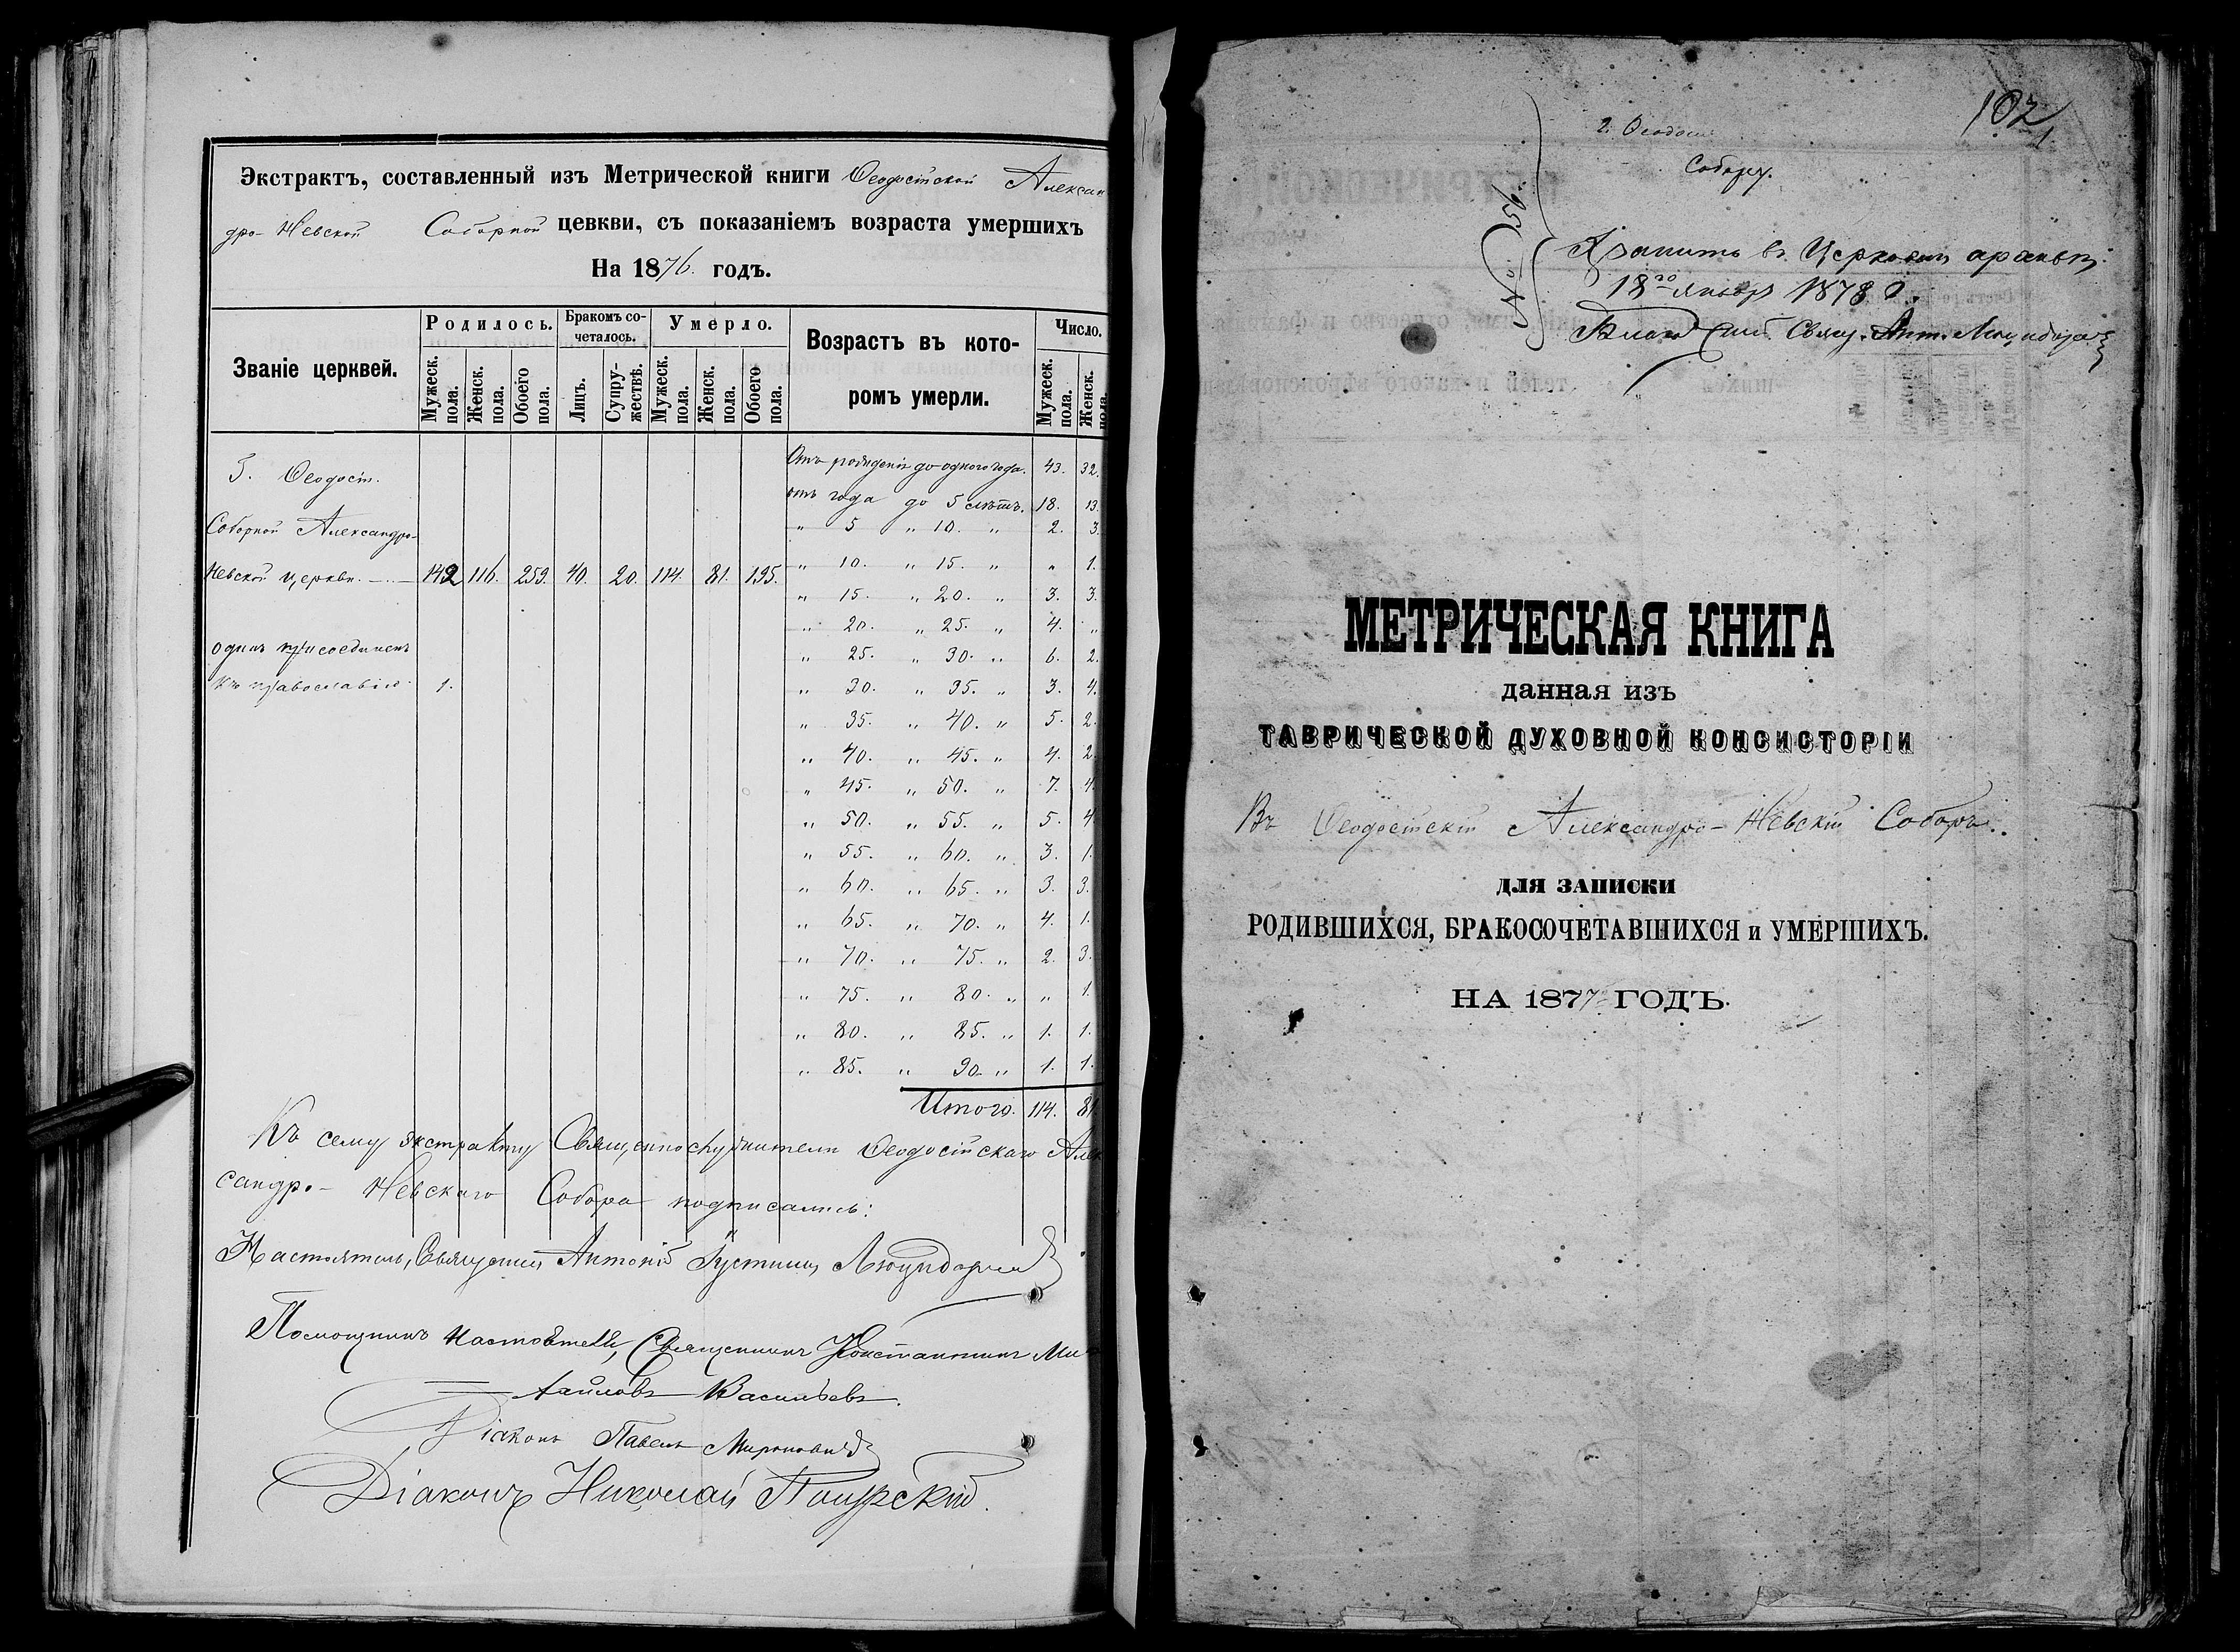 Экстрактъ, составленный изъ Метрической книги Ѳеодосійской Алексан
дро-Невской Соборной цевкви, съ показаніемъ возраста умершихъ
На 1876. годъ.
Званіе церквей.
Родилось.
Бракомъ со-
четалось.
Умерло.
Возрастъ въ кото-
ромъ умерли.
Число.
Мужеск. пола.
Женск. пола.
Обоего пола.
Лицъ.
Супру-
жествъ.
Мужеск. пола.
Женск. пола.
Обоего пола.
Мужеск. пола.
Женск. пола.
Г. Ѳеодосіи.
Соборной Александро-
Невской церкви. 116. 259. 40. 20. 114. 81. 195.
одинъ присоединенъ
къ православію 1.
Отъ рожденія до одного года. 43. 32.
отъ года до 5 лѣтъ. 18. 13.
" 5 " 10. " 2. 3.
" 10. " 15. " " 1.
" 15. " 20. " 3. 3.
" 20. " 25. " 4. "
" 25. " 30. " 6. 2.
" 30. " 35. " 3. 4.
" 35. " 40. " 5. 2.
" 40. " 45. " 4. 2.
" 45. " 50. " 7. 4.
" 50. " 55. " 5. 4
" 55. " 60. " 3. 1.
" 60. " 65. " 3. 3.
" 65. " 70. " 4. 1.
" 70. " 75. " 2. 3.
" 75. " 80. " " 1.
" 80. " 85. " 1. 1.
" 85. " 90. " 1. 1.
Итого. 114. 81
Къ сему экстракту Священнослужители Ѳеодосійскаго Алек
сандро-Невскаго Собора подписались:
Настоятель, Священникъ Антоній
Помощникъ Настоятеля, Священникъ Константинъ Ми
хайловъ Васильевъ.
Діаконъ Павелъ Мироновичъ
Діаконъ Николай
102
1.
г. Ѳеодосіи
Собору.
№ 95
Хранить въ Церковн архивѣ.
18го январ 1878 г.
Свящ. Ант.
МЕТРИЧЕСКАЯ КНИГА
данная изъ
ТАВРИЧЕСКОЙ ДУХОВНОЙ КОНСИСТОРІИ
Въ Ѳеодосійскій Александро-Невскій Соборъ.
ДЛЯ ЗАПИСКИ
РОДИВШИХСЯ, БРАКОСОЧЕТАВШИХСЯ и УМЕРШИХЪ.
НА 1877 ГОДЪ.